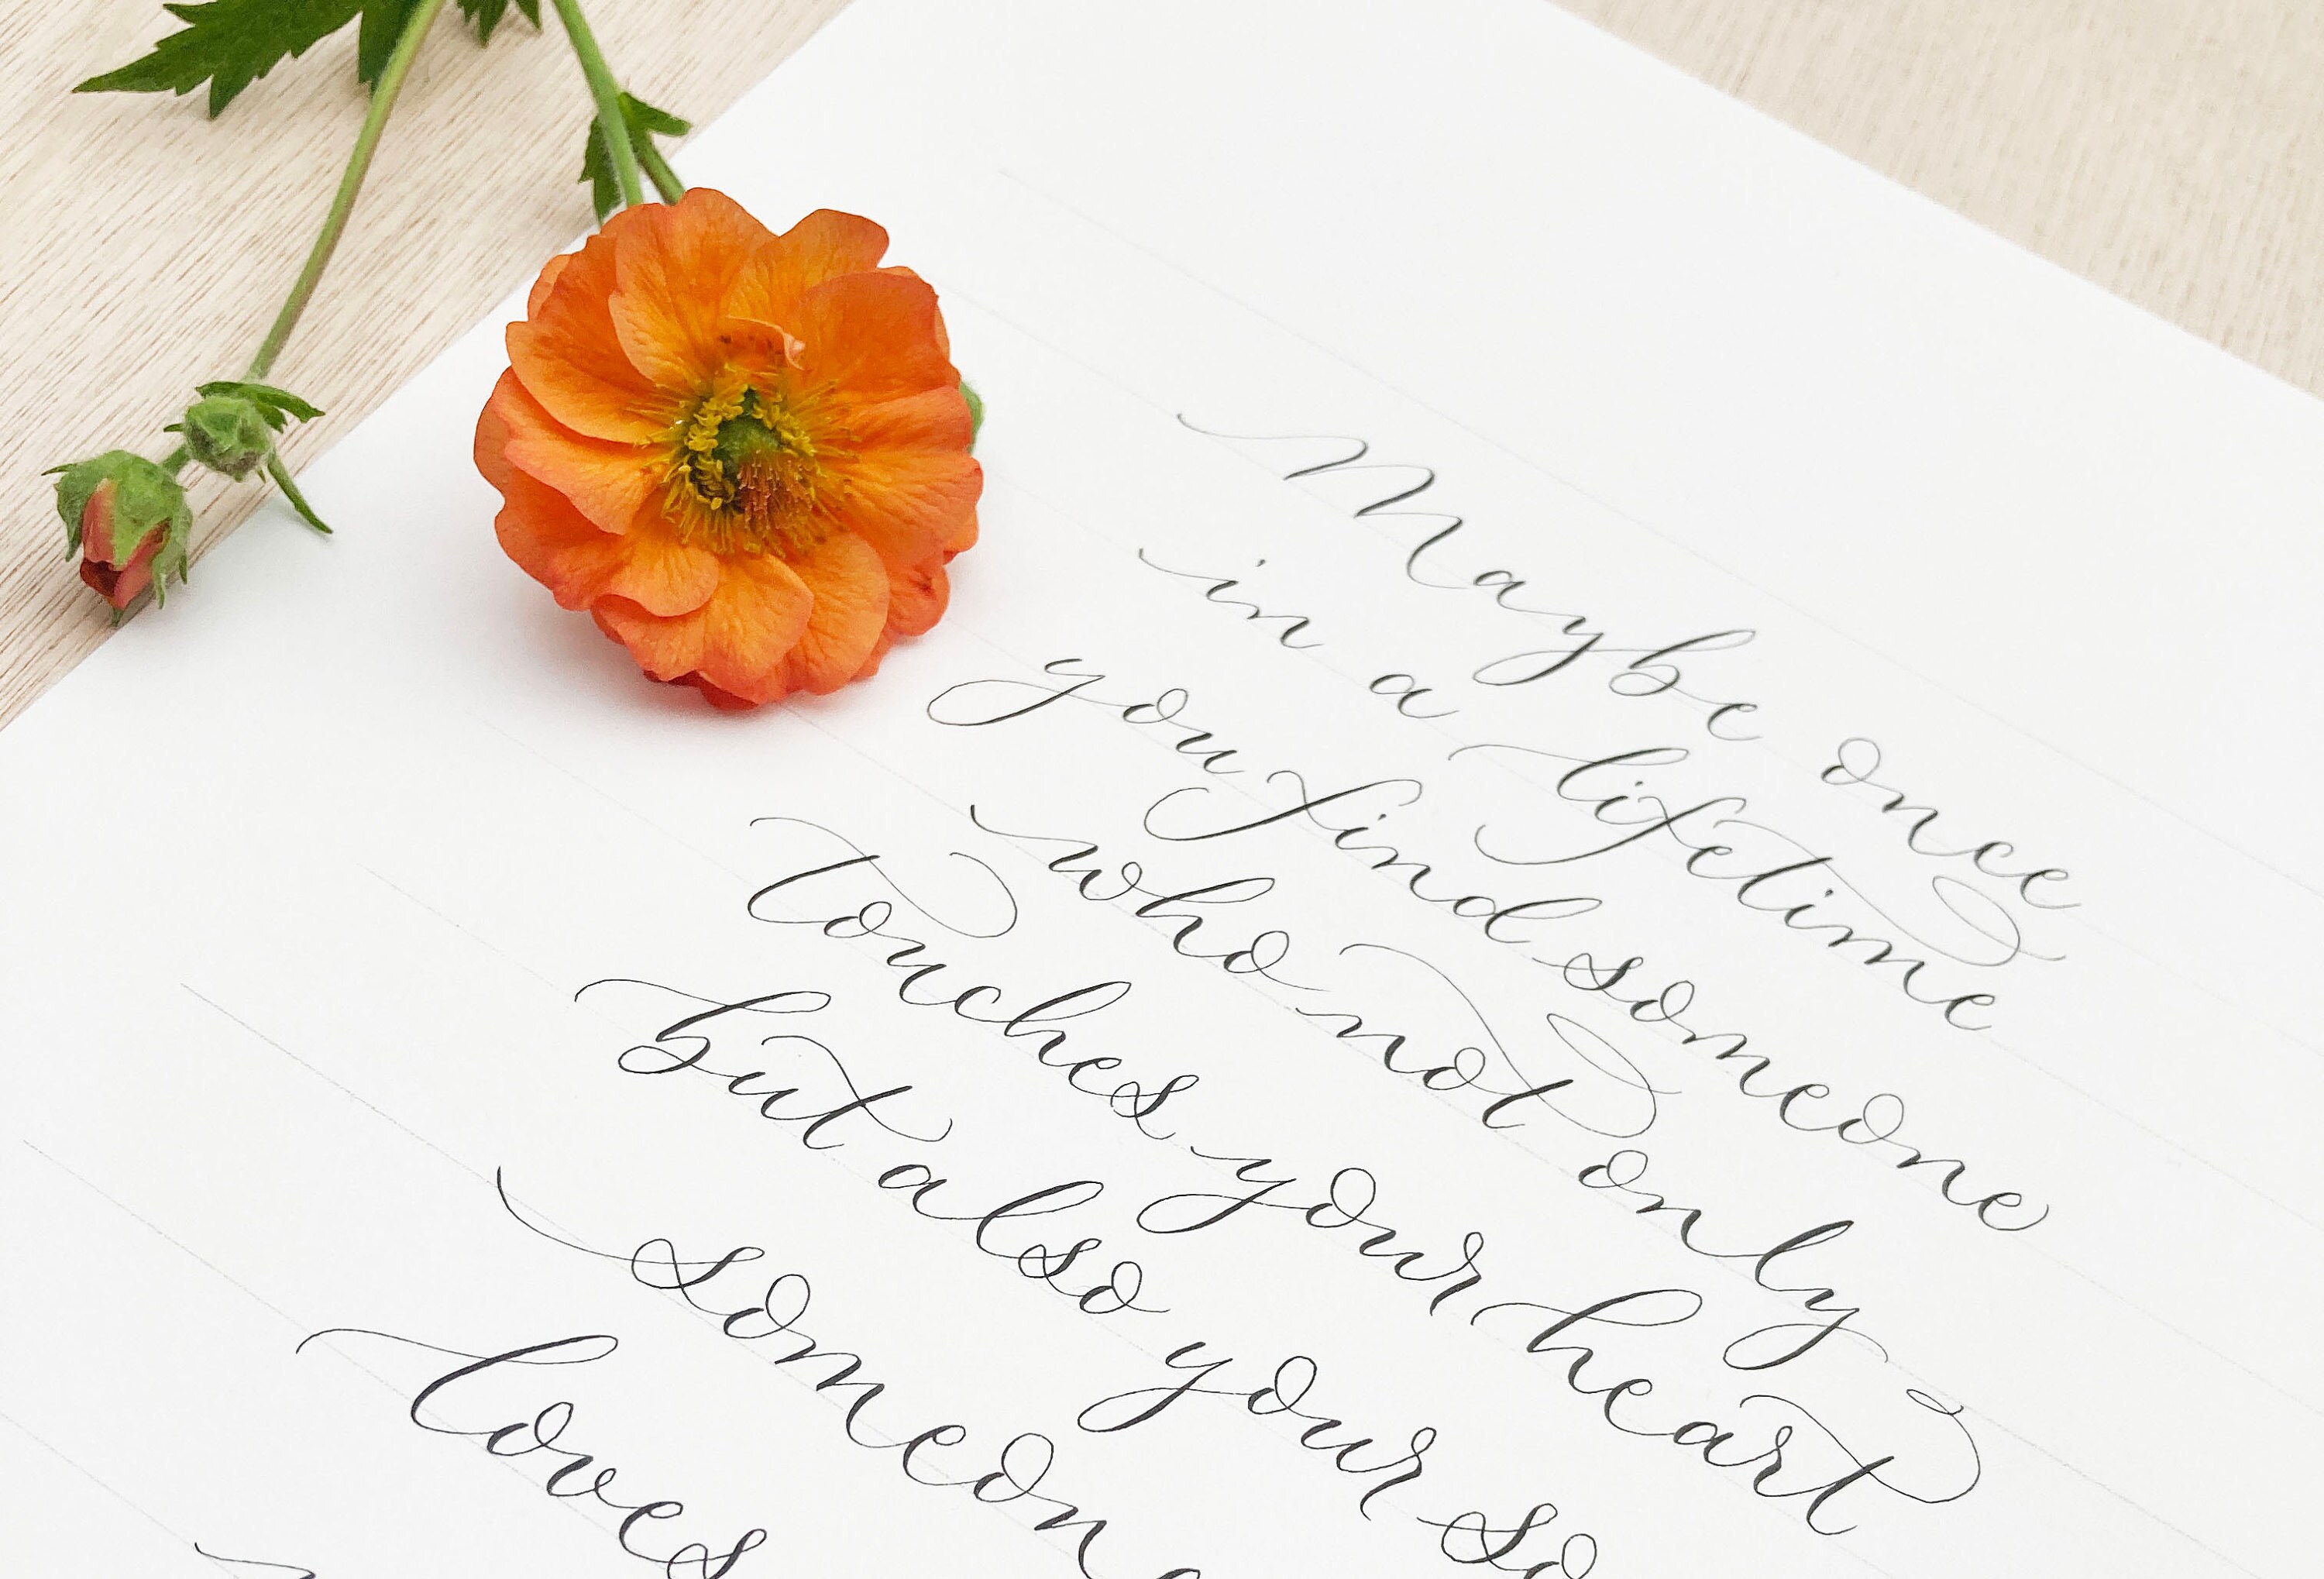 Maybe once
in a lifetime
you find someone
who not only
touches your heart
but also your so
someone
loves